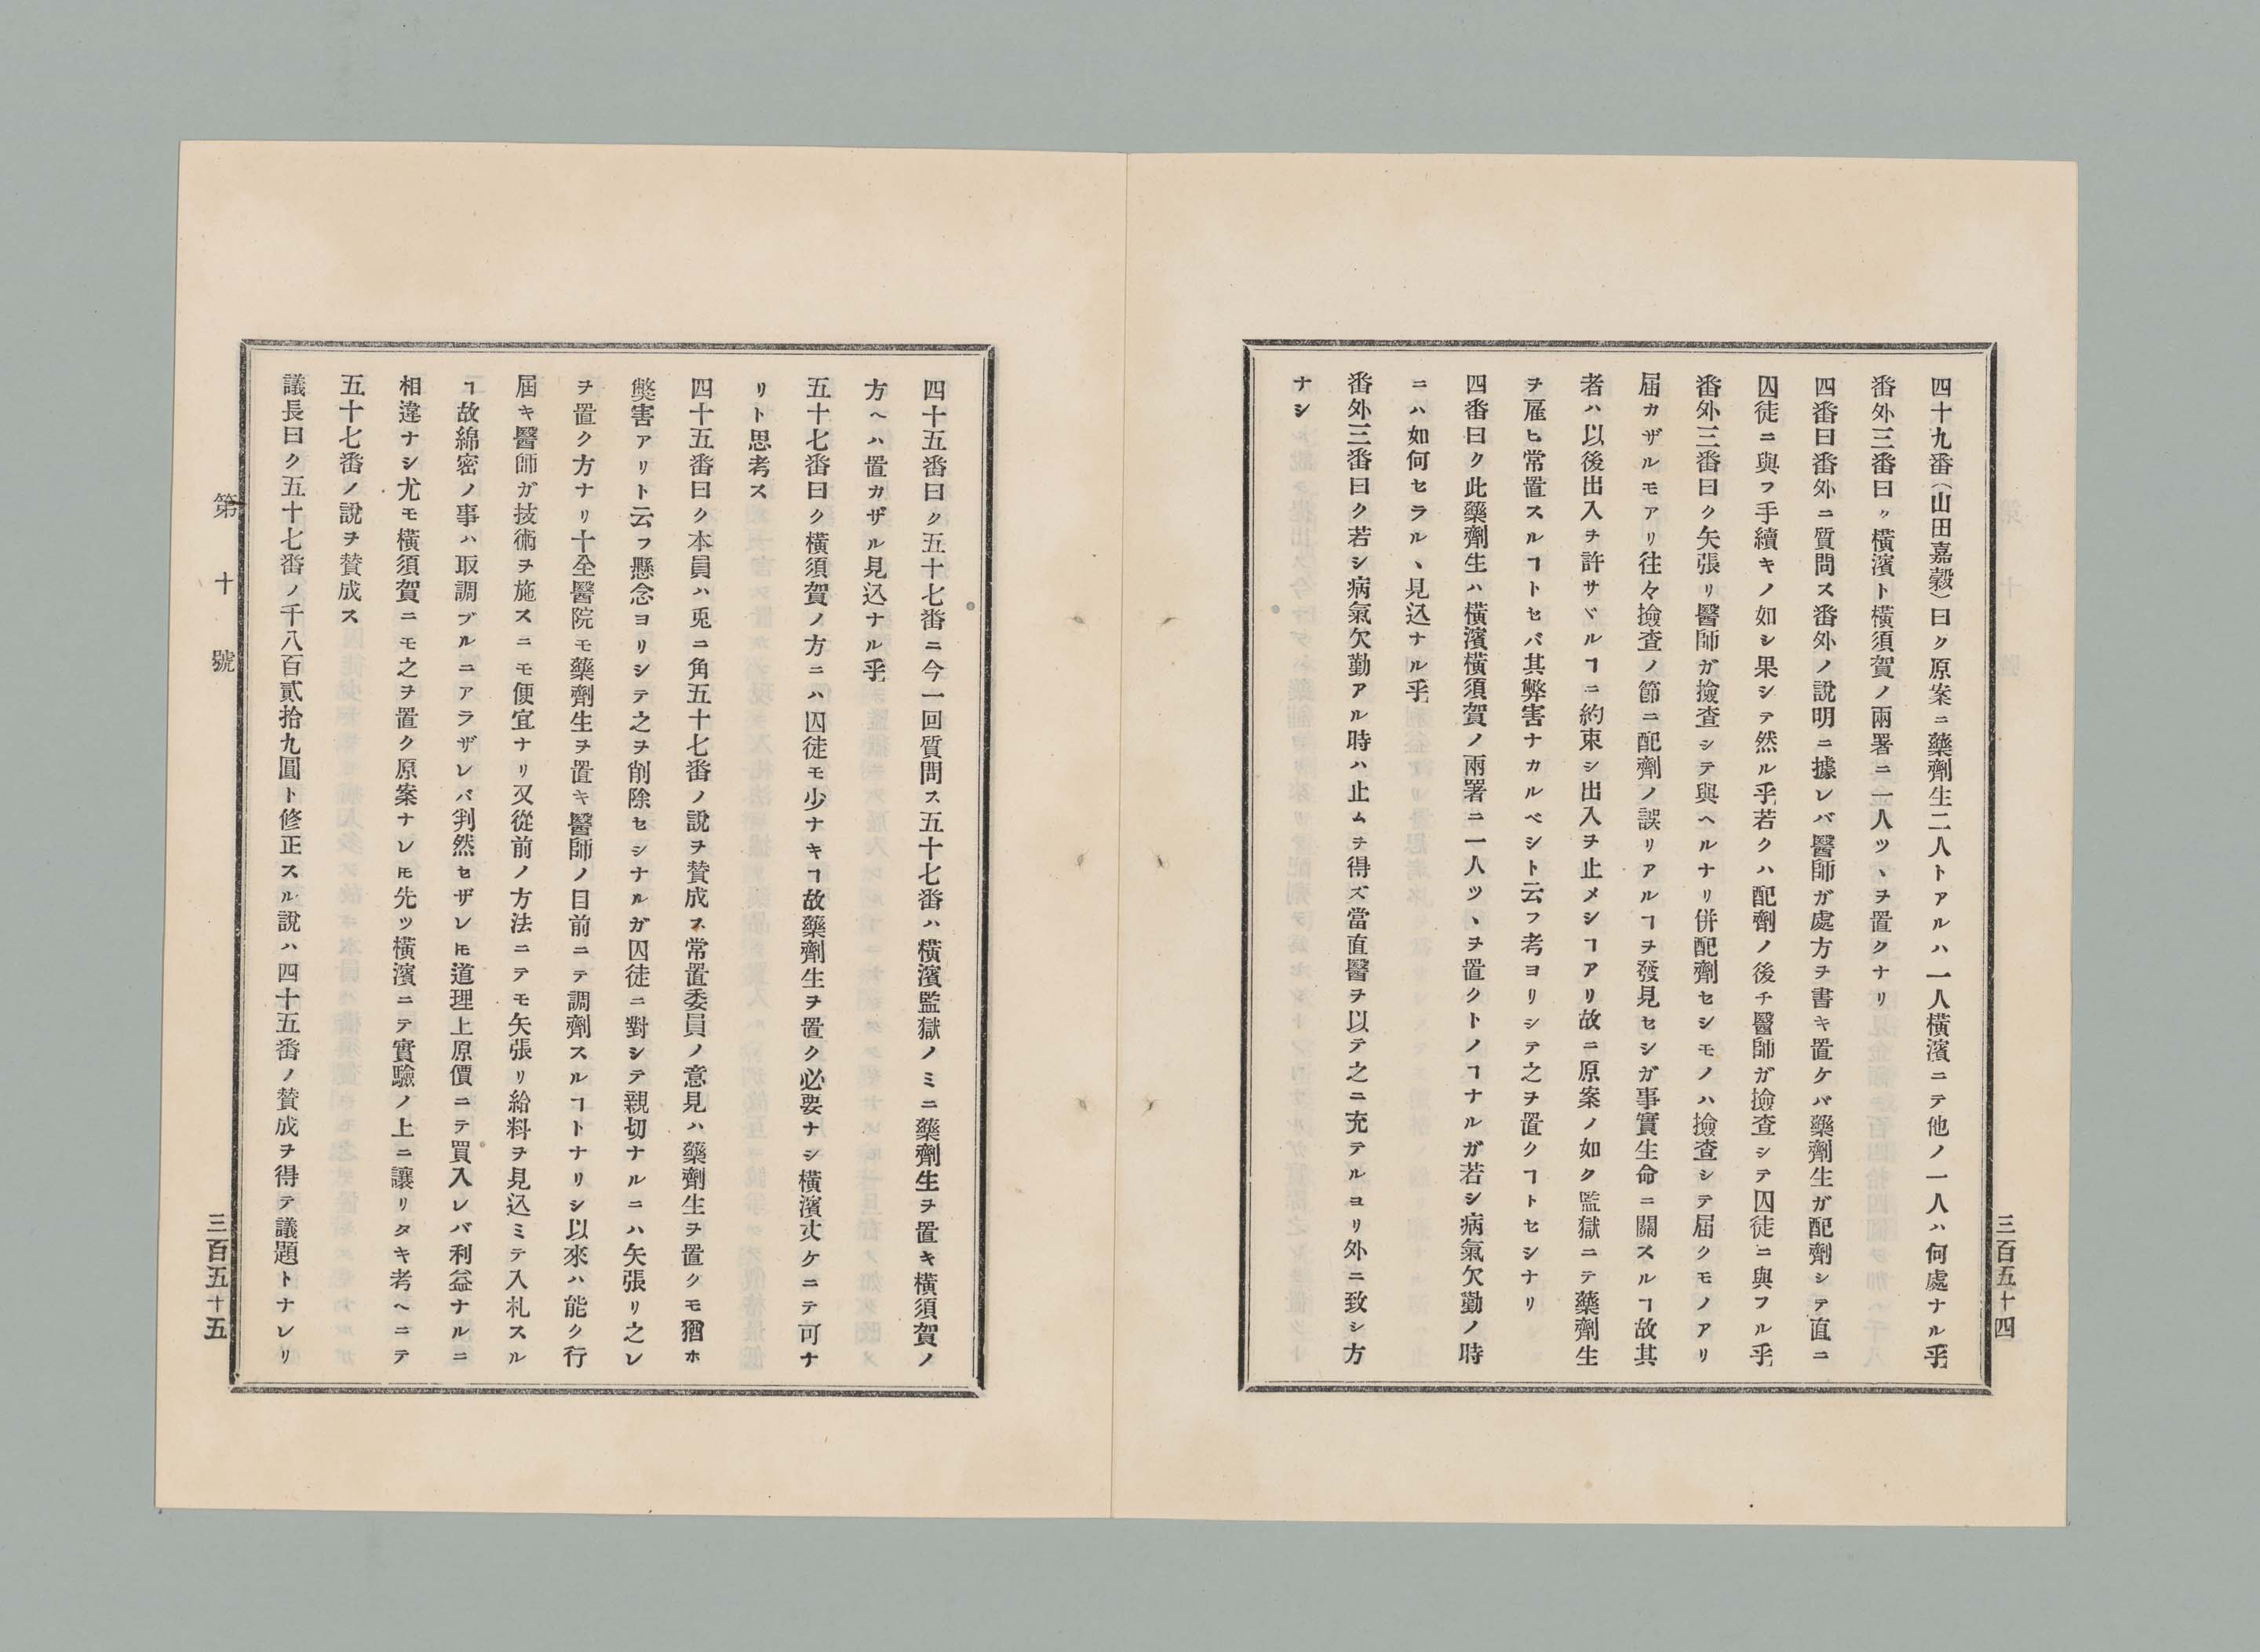 三百五十四
四十九番（山田嘉穀）曰ク原案ニ藥劑生二人トアルハ一人橫濱ニテ他ノ一人ハ何處ナル乎
番外三番曰ク橫濱ト橫須賀ノ兩署ニ一人ツヽヲ置クナリ
四番曰番外ニ質問ス番外ノ說明ニ據レバ醫師ガ處方ヲ書キ置ケバ藥劑生ガ配劑シテ直ニ
囚徒ニ與フ手續キノ如シ果シテ然ル乎若クハ配劑ノ後チ醫師ガ撿查シテ囚徒ニ與フル乎
番外三番曰ク矢張リ醫師ガ撿查シテ與ヘルナリ併配劑セシモノハ撿查シテ屆クモノアリ
屆カザルモアリ往々撿查ノ節ニ配劑ノ誤リアルヿヲ發見セシガ事實生命ニ關スルヿ故其
者ハ以後出入ヲ許サヾルヿニ約束シ出入ヲ止メシヿアリ故ニ原案ノ如ク監獄ニテ藥劑生
ヲ雇ヒ常置スルヿトセバ其弊害ナカルベシト云フ考ヨリシテ之ヲ置クヿトセシナリ
四番曰ク此藥劑生ハ橫濱橫須賀ノ兩署ニ一人ツヽヲ置クトノヿナルガ若シ病氣欠勤ノ時
ニハ如何セラルヽ見込ナル乎
番外三番曰ク若シ病氣欠勤アル時ハ止ムヲ得ズ當直醫ヲ以テ之ニ充テルヨリ外ニ致シ方
ナシ
四十五番曰ク五十七番ニ今一回質問ス五十七番ハ橫濱監獄ノミニ藥劑生ヲ置キ橫須賀ノ
方ヘハ置カザル見込ナル乎
五十七番曰ク橫須賀ノ方ニハ囚徒モ少ナキヿ故藥劑生ヲ置ク必要ナシ橫濱丈ケニテ可ナ
リト思考ス
四十五番曰ク本員ハ兎ニ角五十七番ノ說ヲ賛成ス常置委員ノ意見ハ藥劑生ヲ置クモ猶ホ
獘害アリト云フ懸念ヨリシテ之ヲ削除セシナルガ囚徒ニ對シテ親切ナルニハ矢張リ之レ
ヲ置ク方ナリ十全醫院モ藥劑生ヲ置キ醫師ノ目前ニテ調劑スルヿトナリシ以來ハ能ク行
屆キ醫師ガ技術ヲ施スニモ便宜ナリ又從前ノ方法ニテモ矢張リ給料ヲ見込ミテ入札スル
ヿ故綿密ノ事ハ取調ブルニアラザレバ判然セザレ𪜈道理上原價ニテ買入レバ利益ナルニ
相違ナシ尤モ橫須賀ニモ之ヲ置ク原案ナレ𪜈先ツ橫濱ニテ實驗ノ上ニ讓リタキ考ヘニテ
五十七番ノ說ヲ賛成ス
議長曰ク五十七番ノ千八百貳拾九圓ト修正スル說ハ四十五番ノ賛成ヲ得テ議題トナレリ
第十號
三百五十五